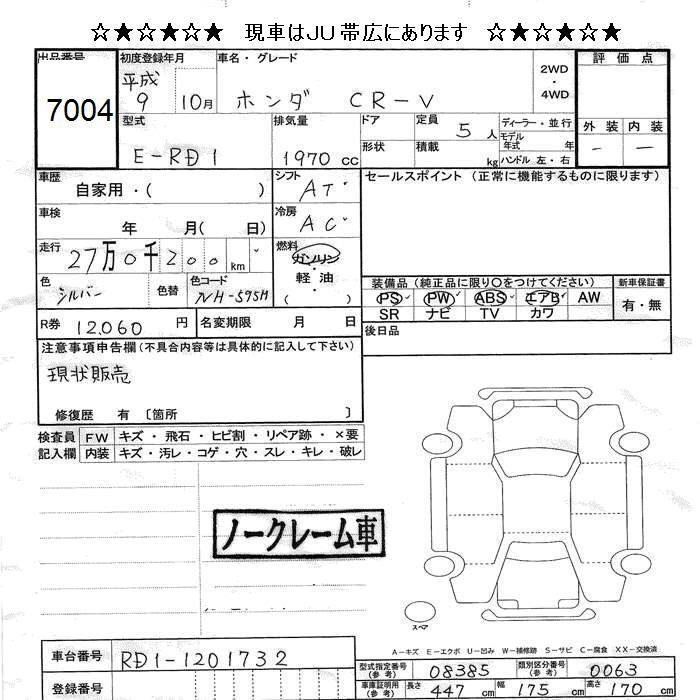 ☆★☆★☆★ 現車はJU帯広にあります ☆★☆★☆★
出品番号 初度登録年月 車名・グレード 評価点
7004 平成 9 10月 ホンダ CR-V 2WD ・ 4WD
型式 排気量 ドア 定員 5人 ディーラー・並行 外装 内装
E-RD1 1970 cc 形状 積載 kg モデル年式 年 ハンドル 左・右 - -
車歴 自家用・( ) シフト AT セールスポイント (正常に機能するものに限ります)
車検 年 月( 日) 冷房 AC
走行 27万0千200 km 燃料 ガソリン 軽油
色 シルバー 色替 色コード NH-595M ・ 装備品 (純正品に限り○をつけてください) 新車保証書
PS PW ABS エアB AW 有・無
SR ナビ TV カワ
R券 12,060 円 名変期限 月 日 後日品
注意事項申告欄 (不具合内容等は具体的に記入して下さい)
現状販売
修復歴 有 〔箇所 〕
検査員 FW キズ・飛石・ヒビ割・リペア跡・×要
記入欄 内装 キズ・汚レ・コゲ・穴・スレ・キレ・破レ
ノークレーム車
スペア
A-キズ E-エクボ U-凹み W-補修跡 S-サビ C-腐食 XX-交換済
車台番号 RD1-1201732 型式指定番号 (参考) 08385 類別区分番号 (参考) 0063
登録番号 車庫証明用 (参考) 長さ 447 cm 幅 175 cm 高さ 170 cm